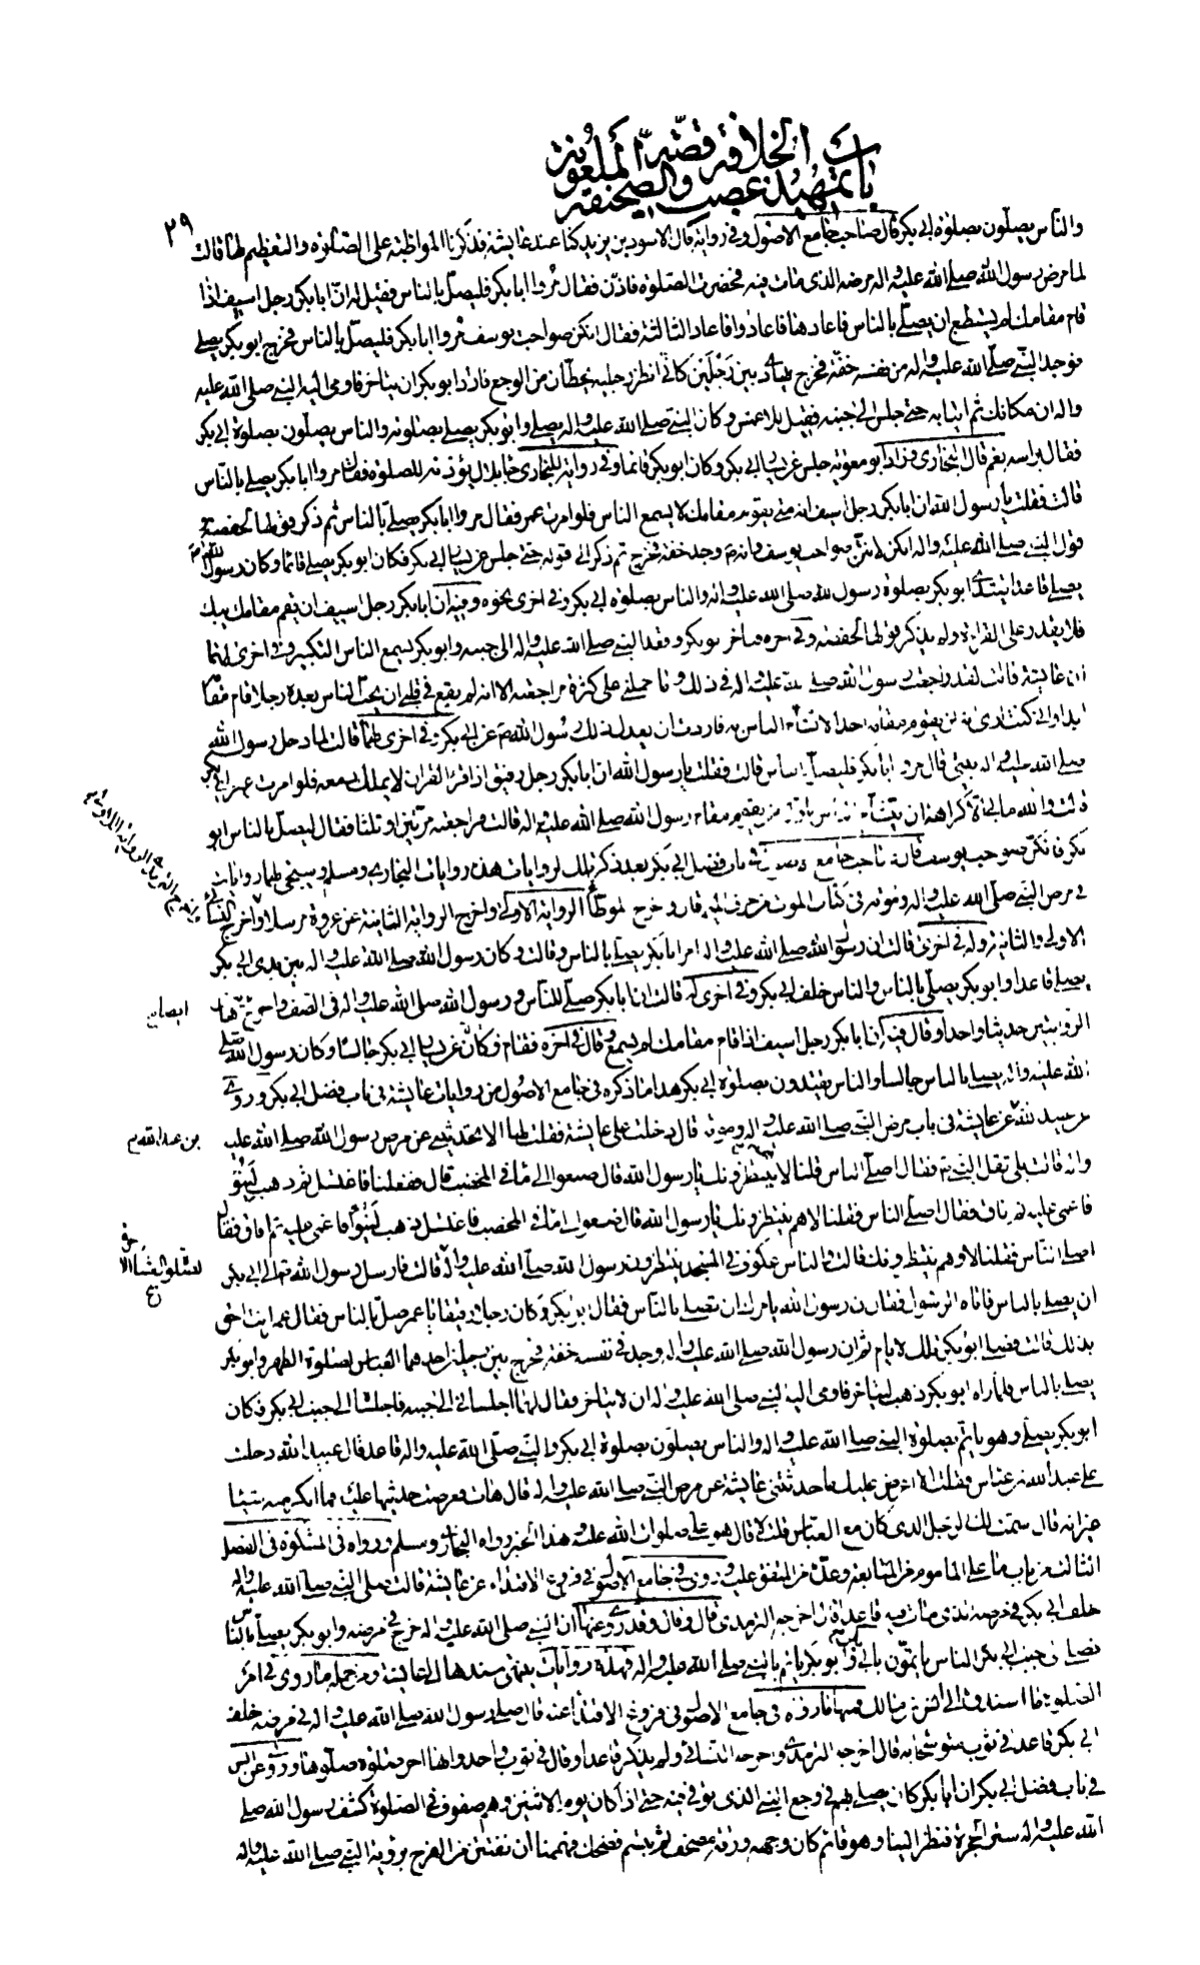 باب تمهيد غصب الخلافة وقصة الصحيفة الملعونة
٢٩
والناس يصلّون بصلوة ابى بكر قال صاحب جامع الاصول وفى رواية قال الاسود بن يزيد كنا عند عايشة فذكرنا المواظبة على الصلوة والتعظيم لها قالت
لما مرض رسول الله صلى الله عليه واله مرضه الذى مات فيه فحضرت الصلوة فاذّن فقال مروا ابا بكر فليصلّ بالناس فقيل له انّ ابا بكر رجل اسيف اذا
قام مقامك لم يستطع ان يصلّى بالناس فاعاد فاعادوا فاعاد الثالثة فقال انكن صواحب يوسف مروا ابا بكر فليصلّ بالناس فخرج ابو بكر يصلى
فوجد النبى صلى الله عليه واله من نفسه خفّة فخرج يهادى بين رجلين كانّى انظر رجليه يخطّان من الوجع فاراد ابو بكر ان يتاخر فاومى اليه النبى صلى الله عليه
واله ان مكانك ثم اتيا به حتى جلس الى جنبه فقيل للاعمش وكان النبى صلى الله عليه واله يصلى وابو بكر يصلى بصلوته والناس يصلّون بصلوة ابى بكر
فقال براسه نعم قال البخارى وزاد ابو معوية جلس عن يسار ابى بكر وكان ابو بكر قائما وفى رواية للبخارى جاء بلال يؤذنه للصلوة فقال مروا ابا بكر يصلى بالنّاس
قالت فقلت يا رسول الله ان ابا بكر رجل اسيف انه متى يقوم مقامك لا يسمع الناس فلو امرت عمر فقال مروا ابا بكر يصلى بالناس ثم ذكر قولها لحفصة
قول النبى صلى الله عليه واله انكن لانتن صواحب يوسف وانه وجد خفة فخرج ثم ذكر الى قوله حتى جلس عن يسار ابى بكر فكان ابو بكر يصلى قائما وكان رسول الله
يصلى قاعدا يقتدى ابو بكر بصلوة رسول الله صلى الله عليه واله والناس بصلوة ابى بكر وفى اخرى نحوه وفيه ان ابا بكر رجل اسيف ان يقم مقامك يبك
فلا يقدر على القراءة ولم يذكر قولها لحفصة وفى اخره فتاخر ابو بكر وقعد النبى صلى الله عليه واله الى جنبه وابو بكر يسمع الناس التكبير وفى اخرى لهما
ان عايشة قالت لقد راجعت رسول الله صلى الله عليه واله فى ذلك وما حملنى على كثرة مراجعته الا انه لم يقع فى قلبى ان يحبّ الناس بعده رجلا قام مقامه
ابدا والى كنت ارى انه لن يقوم مقامه احد الا تشأم الناس به فاردت ان يعدل ذلك رسول الله ص عن ابى بكر وفى اخرى لهما قالت لما دخل رسول الله
صلى الله عليه واله بيتى قال مروا ابا بكر فليصلّ بالناس قالت فقلت يا رسول الله ان ابا بكر رجل رقيق اذا قرأ القران لا يملك دمعه فلو امرت غير ابى بكر
قالت والله ما بى الا كراهة ان يتشأم الناس باول من يقوم مقام رسول الله صلى الله عليه واله قالت فراجعته مرتين او ثلثا فقال ليصل بالناس ابو
بكر فانكن صواحب يوسف قال صاحب جامع الاصول فى باب فضل ابى بكر بعد ذكر تلك الروايات هذه روايات البخارى ومسلم وسيجىء لهما روايات
فى مرض النبى صلى الله عليه واله وموته فى كتاب الموت من حرف الميم قال واخرج الموطأ الرواية الاولى واخرج الرواية الثانية عن عروة مرسلا واخرج النسائى
الاولى والثانية وله فى اخرى قالت ان رسول الله صلى الله عليه واله امر ابا بكر يصلى بالناس وقالت وكان رسول الله صلى الله عليه واله بين يدى ابى بكر
يصلى قاعدا وابو بكر يصلّى بالناس والناس خلف ابى بكر وفى اخرى له قالت انّ ابا بكر صلّى للنّاس ورسول الله صلى الله عليه واله فى الصف واخرج
ايضا
الروايتين حديثا واحدا وقال فيه انّ ابا بكر رجل اسيف اذا قام مقامك لم يسمع وقال فى اخره فقام وكان عن يسار ابى بكر جالسا وكان رسول الله صلى
الله عليه واله يصلى بالناس جالسا والناس يقتدون بصلوة ابى بكر هذا ما ذكره فى جامع الاصول من روايات عايشة فى باب فضل ابى بكر وروى
عن عبيد الله عن عايشة فى باب مرض النبى صلى الله عليه واله وموته قال دخلت على عايشة فقلت لها الا تحدثينى عن مرض رسول الله صلى الله عليه
بن عبد الله
واله قالت بلى ثقل النبى ص فقال اصلّى الناس قلنا لا هم ينتظرونك يا رسول الله قال ضعوا لى ماء فى المخضب قال ففعلنا فاغتسل ثم ذهب لينوء
فاغمى عليه ثم افاق فقال اصلى الناس فقلنا لا هم ينتظرونك يا رسول الله قال ضعوا لى ماء فى المخضب فاغتسل ثم ذهب لينوء فاغمى عليه ثم افاق فقال
اصلى الناس فقلنا لا وهم ينتظرونك قالت والناس عكوف فى المسجد ينتظرون رسول الله صلى الله عليه واله قالت فارسل رسول الله ص الى ابى بكر
لصلوة العشاء الا
ان يصلى بالناس فاتاه الرسول فقال ان رسول الله يامرك ان تصلى بالنّاس فقال ابو بكر وكان رجلا رقيقا يا عمر صلّ بالناس فقال عمر انت احق
بذلك قالت فصلى ابو بكر تلك الايام ثم ان رسول الله صلى الله عليه واله وجد فى نفسه خفة فخرج بين رجلين احدهما العباس لصلوة الظهر وابو بكر
يصلى بالناس فلما راه ابو بكر ذهب ليتاخر فاومى اليه النبى صلى الله عليه واله ان لا يتاخر فقال لهما اجلسانى الى جنبه فاجلساه الى جنب ابى بكر فكان
ابو بكر يصلى وهو ياتم بصلوة النبى صلى الله عليه واله والناس يصلون بصلوة ابى بكر والنبى صلى الله عليه واله قاعد قال عبيد الله دخلت
على عبد الله بن عباس فقلت الا اعرض عليك ما حدثتنى عايشة عن مرض النبى صلى الله عليه واله قال هات فعرضت حديثها عليه فما انكر منه شيئا
غير انه قال سمّت لك الرجل الذى كان مع العباس قلت لا قال هو على صلوات الله عليه هذا الخبر رواه البخارى ومسلم ورواه فى المشكوة فى الفصل
الثالث من باب ما على الماموم من المتابعة وعدّه من المتفق عليه وروى فى جامع الاصول فى فروع الاقتداء عن عايشة قالت صلى النبى صلى الله عليه واله
خلف ابى بكر فى مرضه الذى مات فيه قاعدا قال اخرجه الترمذى قال وقال وقد روى عنها ان النبى صلى الله عليه واله خرج فى مرضه وابو بكر يصلى بالناس
فصلى الى جنب ابى بكر الناس ياتمّون بابى بكر وابو بكر ياتم بالنبى صلى الله عليه واله فهذه روايات ينتهى سندها الى عايشة ومن جملة ما روى فى امر
الصلوة ما اسندوه الى انس بن مالك فمنها ما رواه فى جامع الاصول فى فروع الاقتداء عنه قال صلى رسول الله صلى الله عليه واله فى مرضه خلف
ابى بكر قاعدا فى ثوب متوشحا به قال اخرجه الترمذى واخرجه النسائى ولم يذكر قاعدا وقال فى ثوب واحد وانها اخر صلوة صلّاها وروى عن انس
فى باب فضل ابى بكر ان ابا بكر كان يصلى بهم فى وجع النبى الذى توفى فيه حتى اذا كان يوم الاثنين وهم صفوف فى الصلوة كشف رسول الله صلى
الله عليه واله ستر الحجرة فنظر الينا وهو قائم كان وجهه ورقة مصحف ثم تبسّم فضحك فهممنا ان نفتتن من الفرح برؤية النبى صلى الله عليه واله